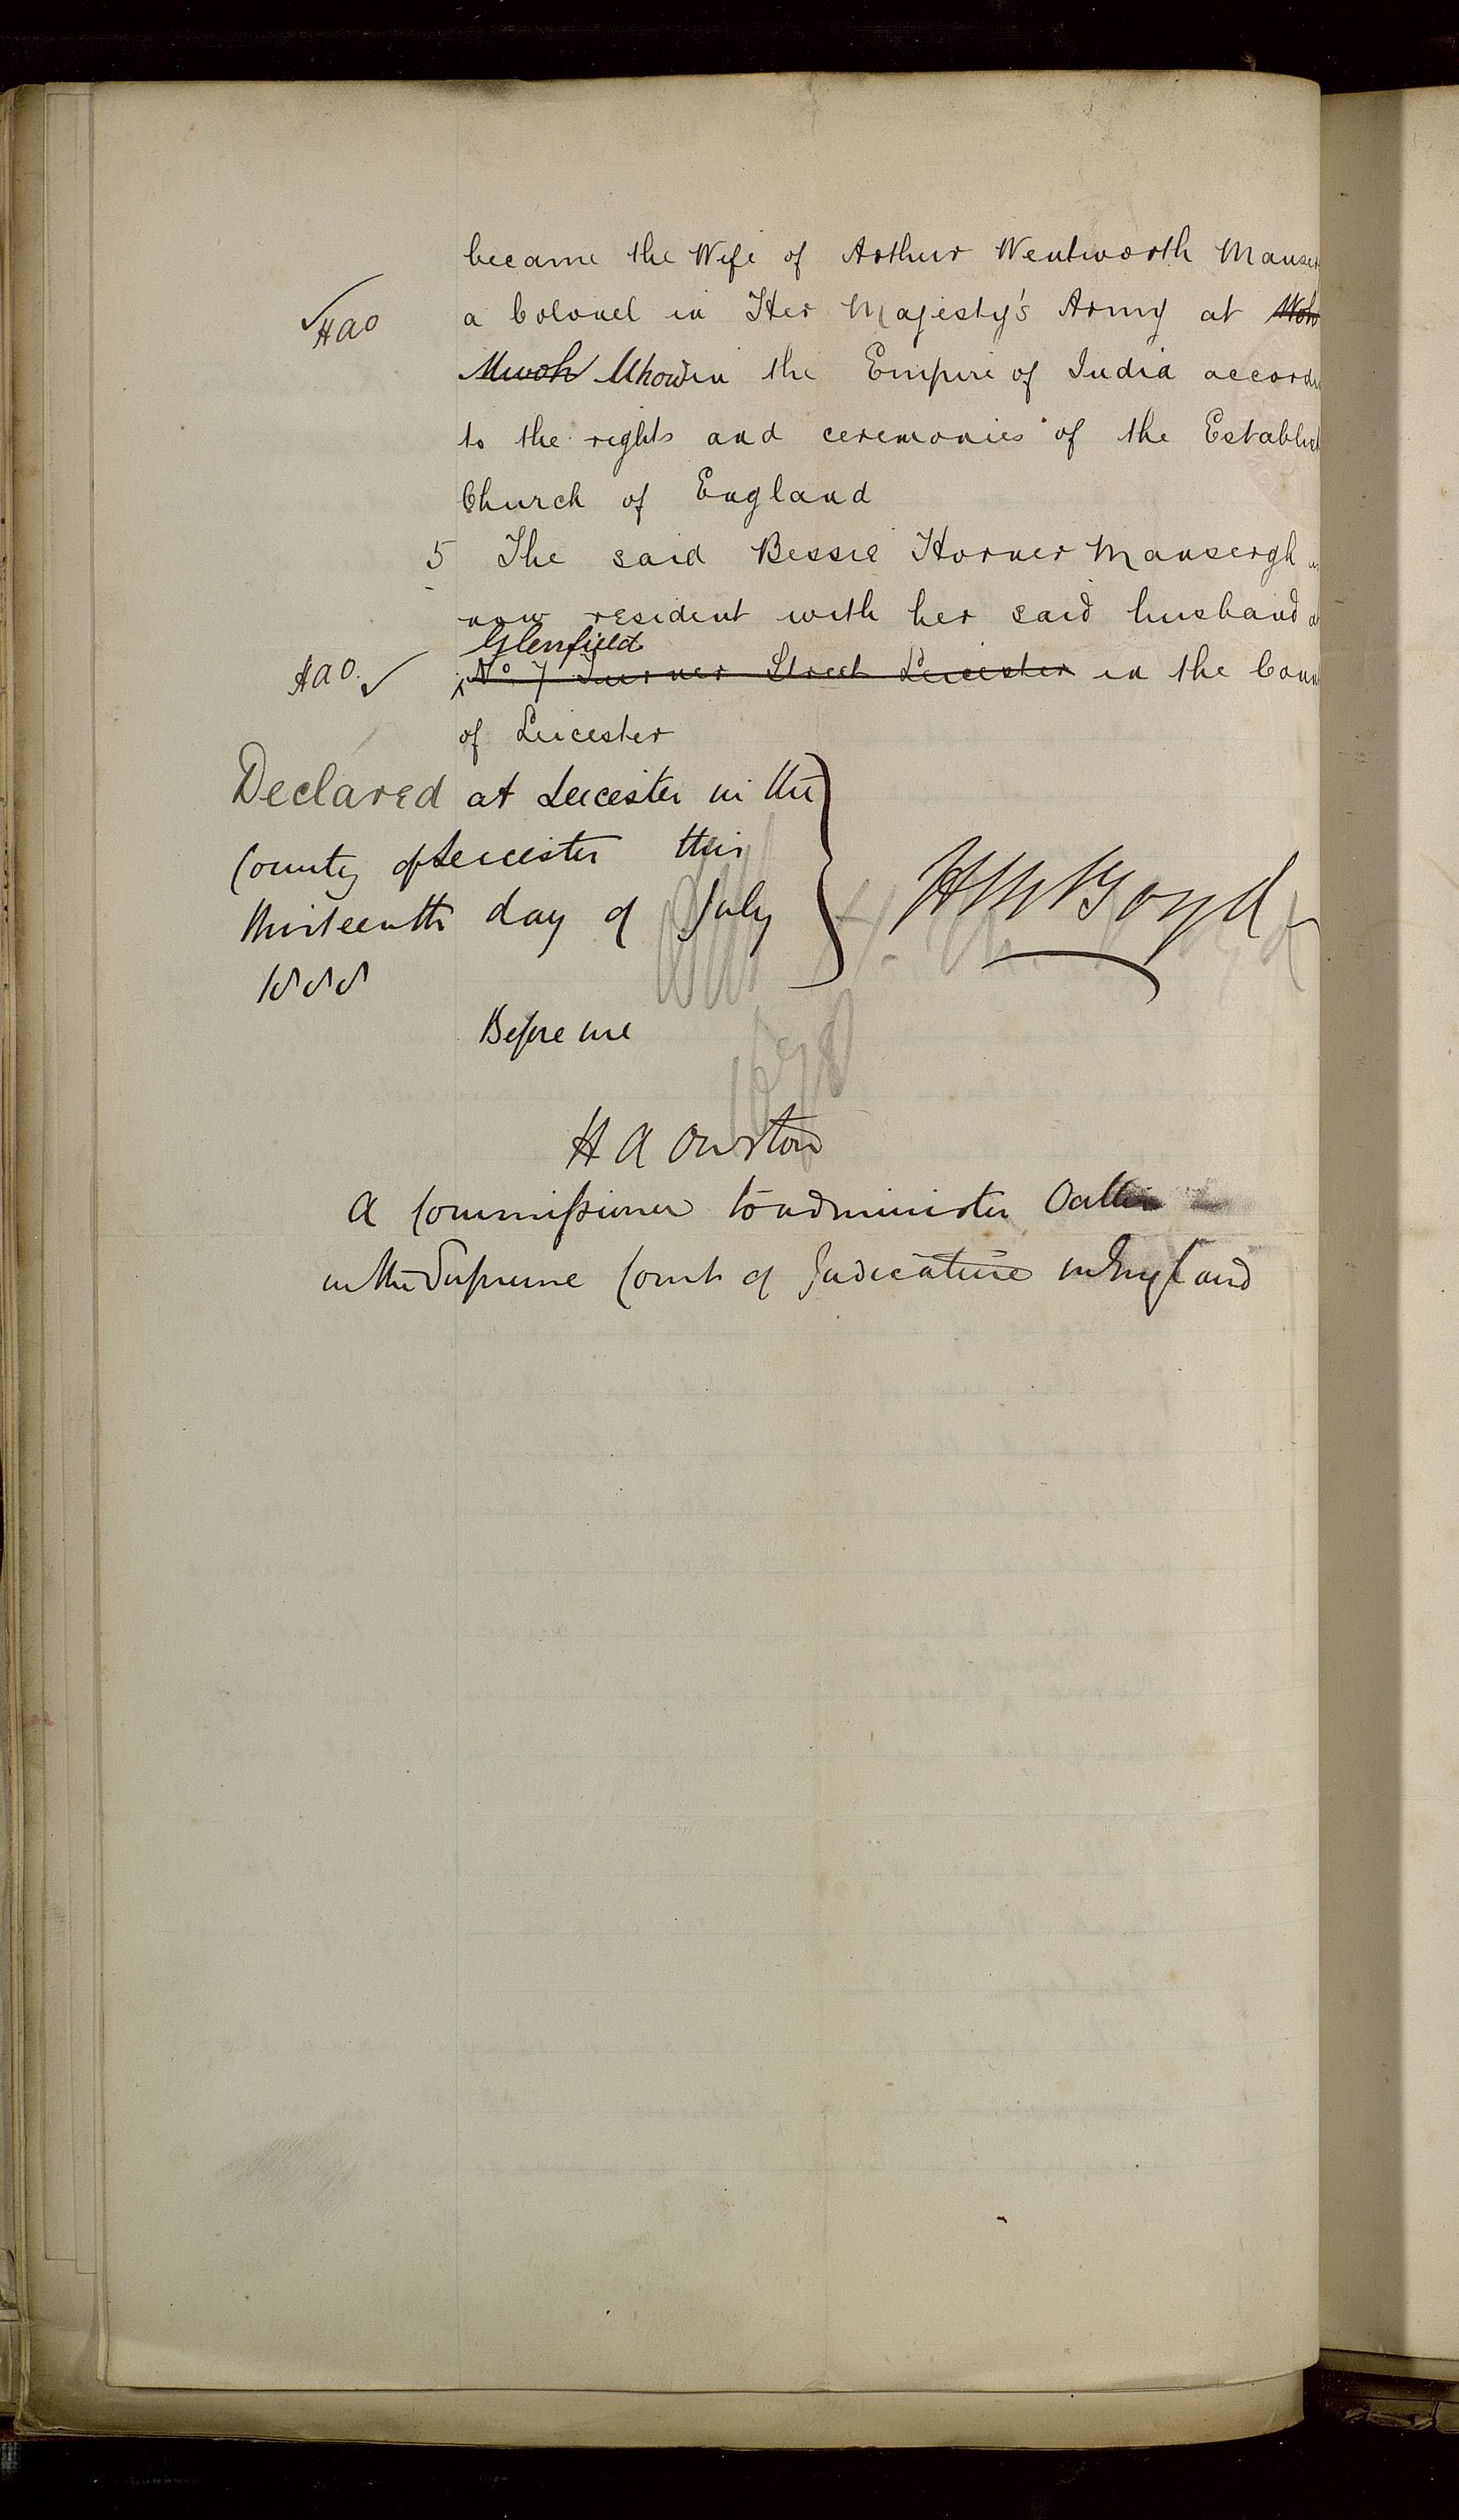 became the Wife of Arthur Wentworth Manser
HAO a Colonel in Her Majesty's Army at
Mwoh Mhow in the Empire of India accordi
to the rights and ceremonies of the Establish
Church of England
5 The said Bessie Horner Mansergh is
now resident with her said husband at
Glenfield
HAO. No 7 Turner Street Leicester in the Coun
of Leicester
Declared at Leicester in the
County of Leicester this
thirteenth day of July
1888
H M Boyd
Before me
H A Owston
A Commissioner to administer Oaths
in the Supreme Court of Judicature in England